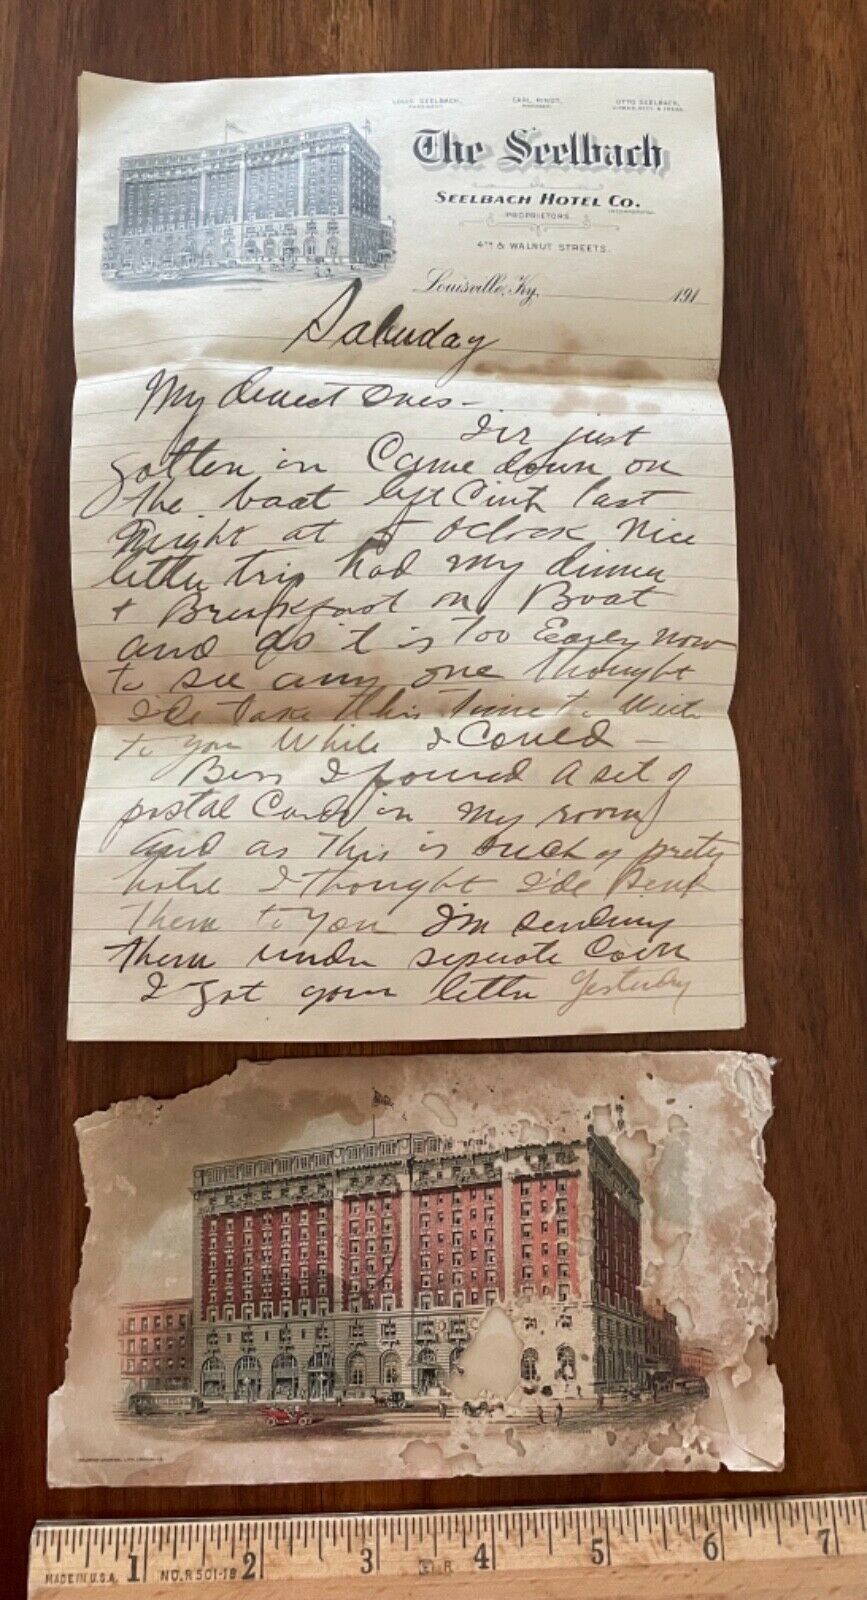 LOUIS SEELBACH, CARL RINDT, OTTO SEELBACH,
PRESIDENT. MANAGER. & TREAS.
The Seelbach
SEELBACH HOTEL CO.
INCORPORATED
PROPRIETORS.
4TH & WALNUT STREETS.
Louisville, Ky. 191
Saturday
My dearest Ones –
I've just
gotten in Came down on
the boat left Cinti last
Night at 5 oclock Nice
little trip had my dinner
+ Breakfast on Boat
and as it is too Early now
to see any one thought
I'de take this time to Write
to you While I Could –
Bess I found a set of
postal Cards in my room
and as this is such a pretty
hotel I thought I'de Send
them to you I'm sending
them under seperate Cover
I got your letter Yesterday
MADE IN U.S.A. 1 NO. R 501-18 2 3 4 5 6 7